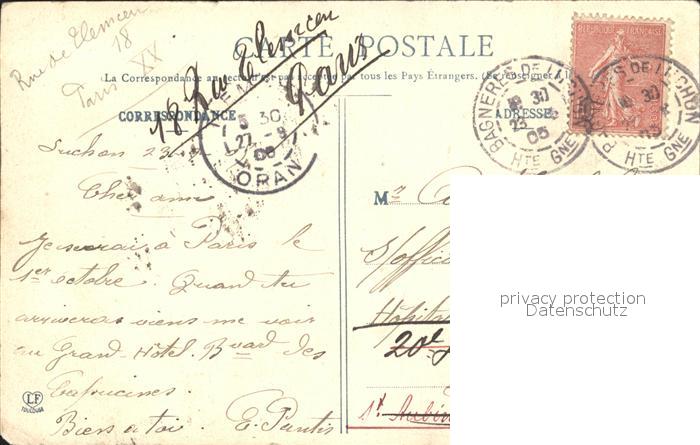 Rue de Tlemcen
18
Paris XX
18 Rue Tlemcen
Paris
CARTE POSTALE
La Correspondance au recto n'est pas acceptée par tous les Pays Étrangers. (Se renseigner à la
CORRESPONDANCE
ADRESSE
REPUBLIQUE FRANÇAISE
BAGNERES DE LUCHON
30
23
05
HTE GNE
BAGNERES DE LUCHON
30
HTE GNE
5 30
27 -9
ORAN
Luchon 23
Cher ami
Je serai à Paris le
1er octobre. Quand tu
arriveras viens me voir
au Grand-Hôtel. Bvard des
Capucines.
Biens à toi. E.
Mr
S/offic
Hôpit
20e
St Aubin
LF
TOULOUSE
privacy protection
Datenschutz